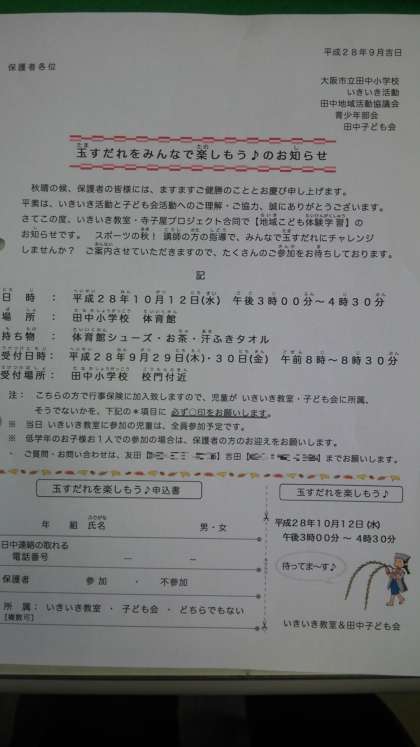 平成２８年９月吉日
保護者各位
大阪市立田中小学校
いきいき活動
田中地域活動協議会
青少年部会
田中子ども会
玉すだれをみんなで楽しもう♪のお知らせ
秋晴の候、保護者の皆様には、ますますご健勝のこととお慶び申し上げます。
平素は、いきいき活動と子ども会活動へのご理解・ご協力、誠にありがとうございます。
さてこの度、いきいき教室・寺子屋プロジェクト合同で【地域こども体験学習】の
お知らせです。 スポーツの秋！講師の方の指導で、みんなで玉すだれにチャレンジ
しませんか？ ご案内させていただきますので、たくさんのご参加をお待ちしております。
記
日 時： 平成２８年１０月１２日(水) 午後３時００分～４時３０分
場 所： 田中小学校 体育館
持ち物： 体育館シューズ・お茶・汗ふきタオル
受付日時： 平成２８年９月２９日(木)・３０日(金) 午前８時～８時３０分
受付場所： 田中小学校 校門付近
注： こちらの方で行事保険に加入致しますので、児童が いきいき教室・子ども会に所属、
そうでないかを、下記の＊項目に 必ず○印をお願いします。
※ 当日 いきいき教室に参加の児童は、全員参加予定です。
※ 低学年のお子様お１人での参加の場合は、保護者の方のお迎えをお願いします。
・ ご質問・お問い合わせは、友田【 】吉田【 】までお願いします。
玉すだれを楽しもう♪申込書
年 組 氏名 ふりがな 男・女
日中連絡の取れる
電話番号 ― ―
保護者 参 加 ・ 不参加
所 属： いきいき教室 ・ 子ども会 ・ どちらでもない
[複数可]
玉すだれを楽しもう♪
平成２８年１０月１２日(水)
午後３時００分 ～ ４時３０分
待ってま～す♪
いきいき教室＆田中子ども会